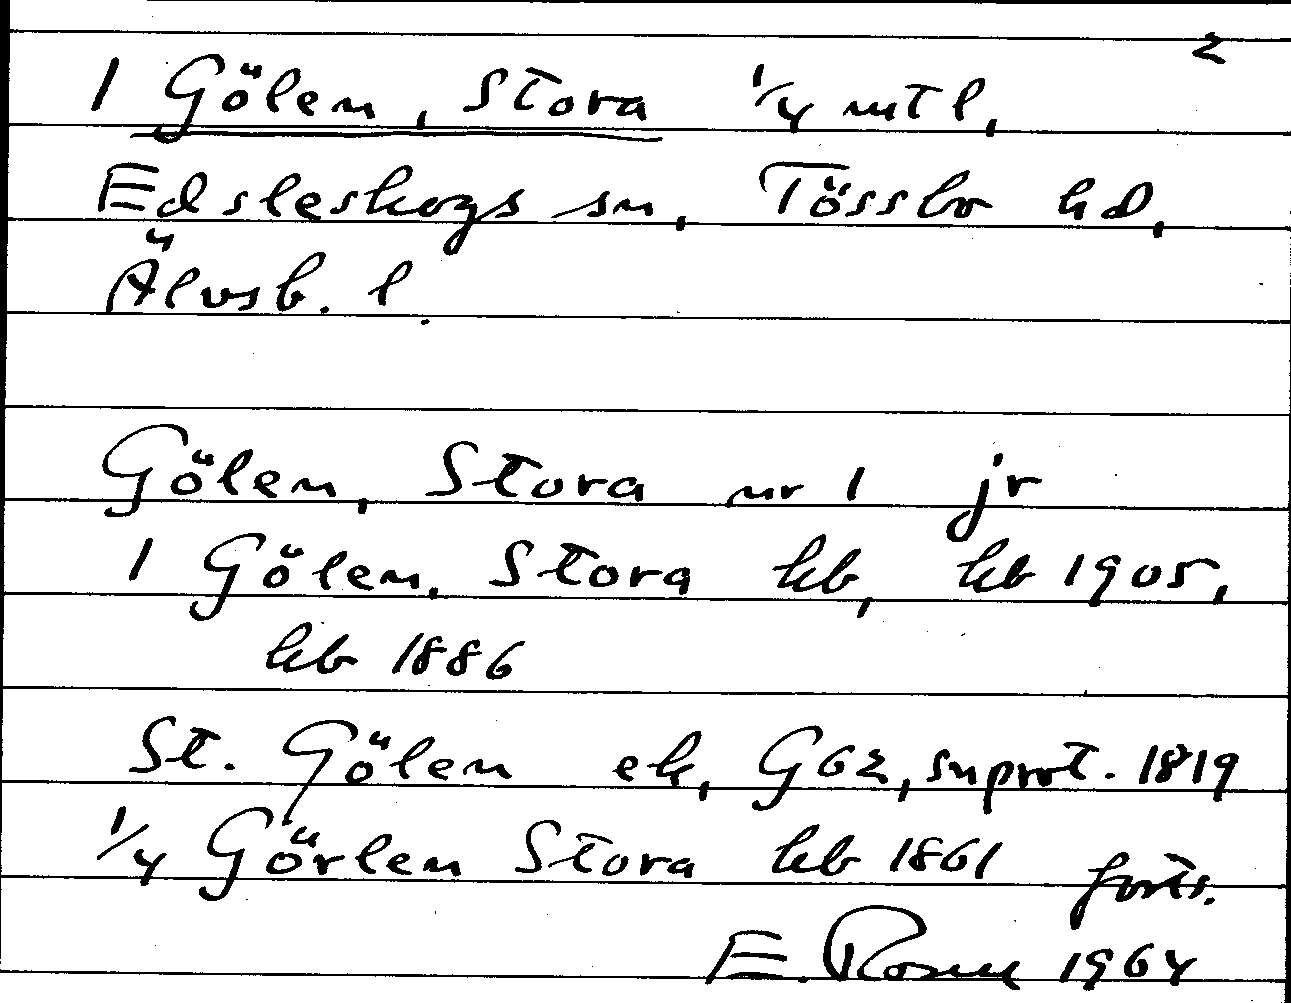 2
1 Gölen, Stora 1/4 mtl,
Edsleskogs sn, Tössbo hd,
Älvsb. l.
Gölen, Stora nr 1 jr
1 Gölen, Stora kb, kb 1905,
kb 1886
St. Gölen ek, G62, snprot. 1819
1/4 Görlen Stora kb 1861 forts.
E. 1964